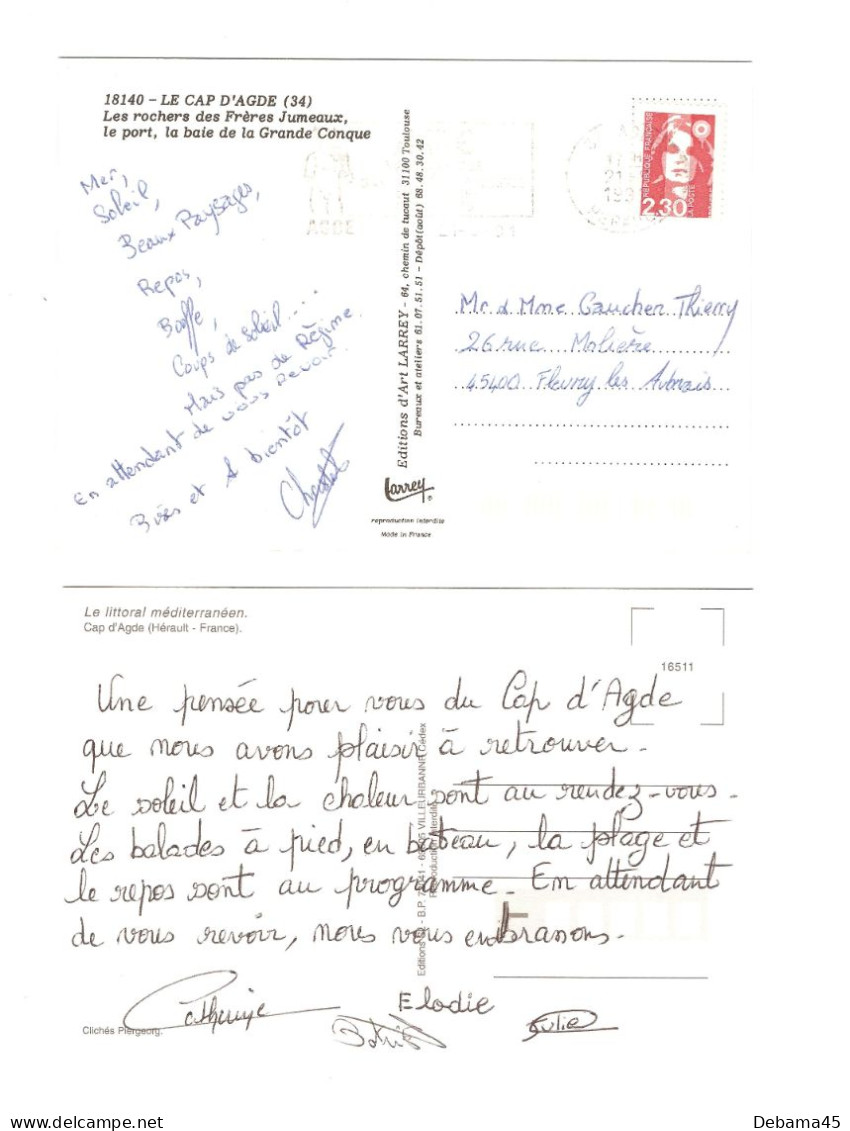 18140 - LE CAP D'AGDE (34)
Les rochers des Frères Jumeaux,
le port, la baie de la Grande Conque
Mer,
Soleil,
Beaux Paysages,
Repos,
Bouffe,
Coups de Soleil....
Mais pas de Régime.
En attendant de vous revoir.
Bises et A bientôt
Editions d'Art LARREY - 64, chemin de tucaut 31100 Toulouse
Bureaux et ateliers 61.07.51.51 - Dépôt (août) 68.48.30.42
Larrey
reproduction interdite
Made in France
RÉPUBLIQUE FRANÇAISE
2,30
LA POSTE
Mr & Mme Gaucher Thierry
26 rue Molière
45400 Fleury les Aubrais
Le littoral méditerranéen.
Cap d'Agde (Hérault - France).
16511
Une pensée pour vous du Cap d'Agde
que nous avons plaisir à retrouver.
Le soleil et la chaleur sont au rendez-vous.
Les balades à pied, en bateau, la plage et
le repos sont au programme. En attendant
de vous revoir, nous vous embrassons.
Catherine
Elodie
Julie
VILLEURBANNE Cedex
Reproduction interdite
Clichés Piergeorg.
Debama45